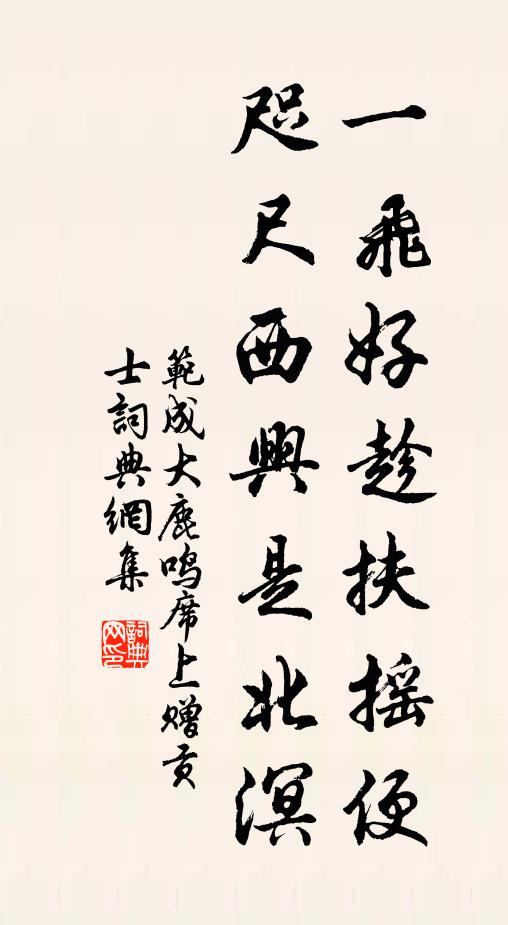 一飛好趁扶摇便
咫尺西興是北溟
範成大鹿鳴席上贈貢
士詞典網集
詞典网印